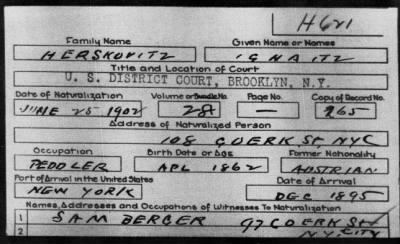 H621
Family Name Given Name or Names
HERSKOVITZ IGNATZ
Title and Location of Court
U. S. DISTRICT COURT, BROOKLYN, N.Y.
Date of Naturalization Volume or Bundle No. Page No. Copy of Record No.
JUNE 25 1902 281 — 265
Address of Naturalized Person
108 GOERK ST, NYC
Occupation Birth Date or Age Former Nationality
PEDDLER APL 1862 AUSTRIAN
Port of Arrival in the United States Date of Arrival
NEW YORK DEC 1895
Names, Addresses and Occupations of Witnesses To Naturalization
1 SAM BERGER 97 GOERK ST
2 N.Y. CITY